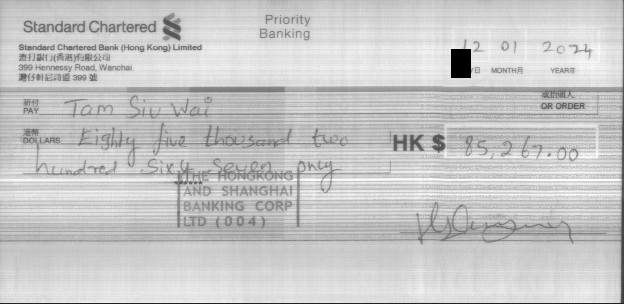 Standard Chartered
Priority
Banking
Standard Chartered Bank (Hong Kong) Limited
渣打銀行(香港)有限公司
399 Hennessy Road, Wanchai
灣仔軒尼詩道 399 號
12 01 2024
日 MONTH月 YEAR年
祈付
PAY Tam Siu Wai
或指個人
OR ORDER
港幣
DOLLARS Eighty five thousand two
hundred Sixty Seven only
HK $ 85,267.00
THE HONGKONG
AND SHANGHAI
BANKING CORP
LTD (004)